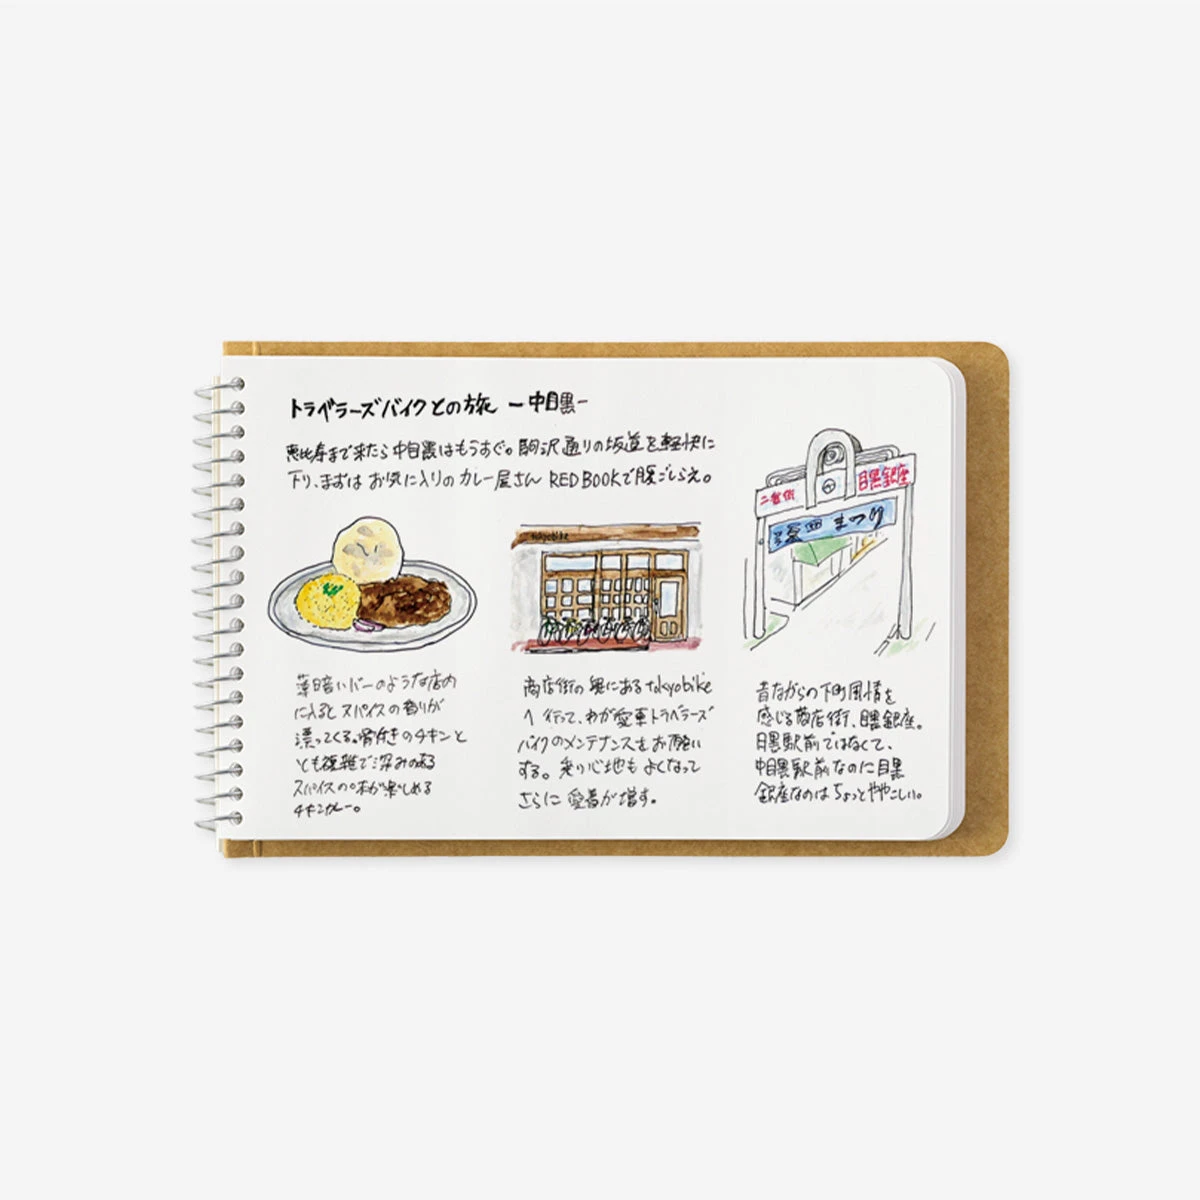 トラベラーズバイクとの旅 −中目黒−
恵比寿まで来たら中目黒はもうすぐ。駒沢通りの坂道を軽快に
下り、まずはお気に入りのカレー屋さん RED BOOKで腹ごしらえ。
tokyobike
二番街
目黒銀座
まつり
薄暗いバーのような店内
に入るとスパイスの香りが
漂ってくる。骨付きのチキンと
とも複雑で深みのある
スパイスの味が楽しめる
チキンカレー。
商店街の奥にあるtokyobike
へ行って、わが愛車トラベラーズ
バイクのメンテナンスをお願い
する。乗り心地もよくなって
さらに愛着が増す。
昔ながらの下町風情を
感じる商店街、目黒銀座。
目黒駅前ではなくて、
中目黒駅前なのに目黒
銀座なのはちょっとややこしい。